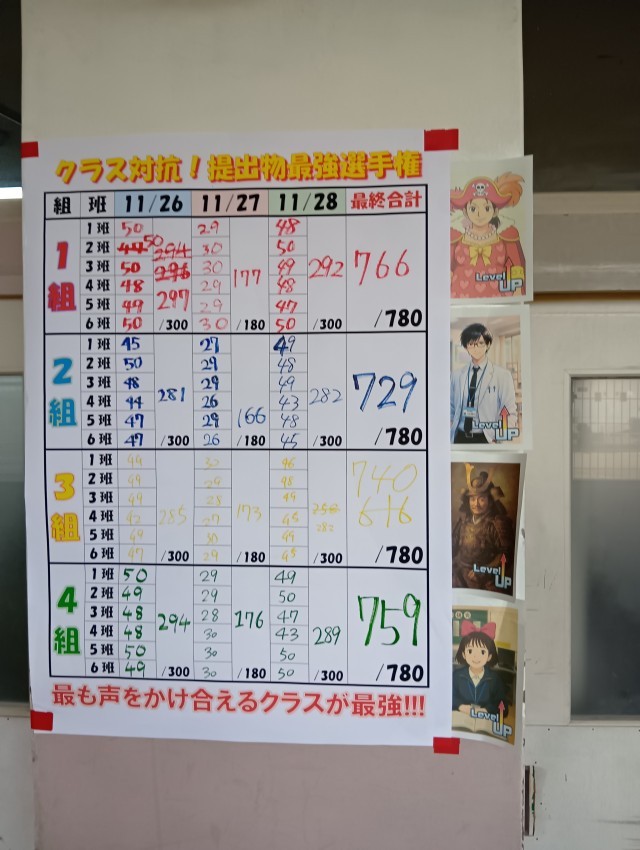 クラス対抗！提出物最強選手権
組 班 11/26 11/27 11/28 最終合計
1組
1班 50 29 48
2班 47 50 294 30 50
3班 50 296 30 177 49 292 766
4班 48 297 29 48
5班 49 29 47
6班 50 /300 30 /180 50 /300 /780
2組
1班 45 27 49
2班 50 29 48
3班 48 29 49
4班 44 281 26 43 282 729
5班 47 29 166 48
6班 47 /300 26 /180 45 /300 /780
3組
1班 30 740
2班 49 29 616
3班 49 28 49
4班 42 285 27 173 45 282
5班 49 30 49
6班 47 /300 29 /180 45 /300 /780
4組
1班 50 29 49
2班 49 29 50
3班 48 294 28 176 47 759
4班 48 30 43 289
5班 50 30 50
6班 49 /300 30 /180 50 /300 /780
最も声をかけ合えるクラスが最強!!!
Level UP
Level UP
Level UP
Level UP